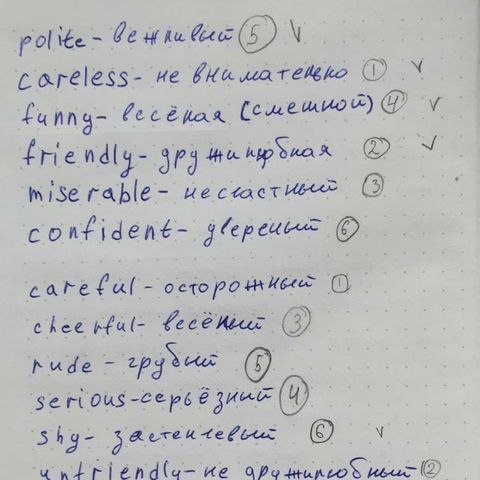 polite - вежливый 5 v
careless - не внимательно 1 v
funny - весёлая (смешной) 4 v
friendly - дружилюбная 2 v
miserable - несчастный 3
confident - увереный 6
careful - осторожный 1
cheerful - весёлый 3
rude - грубый 5
serious - серьёзный 4
shy - застенчевый 6 v
unfriendly - не дружилюбный 2